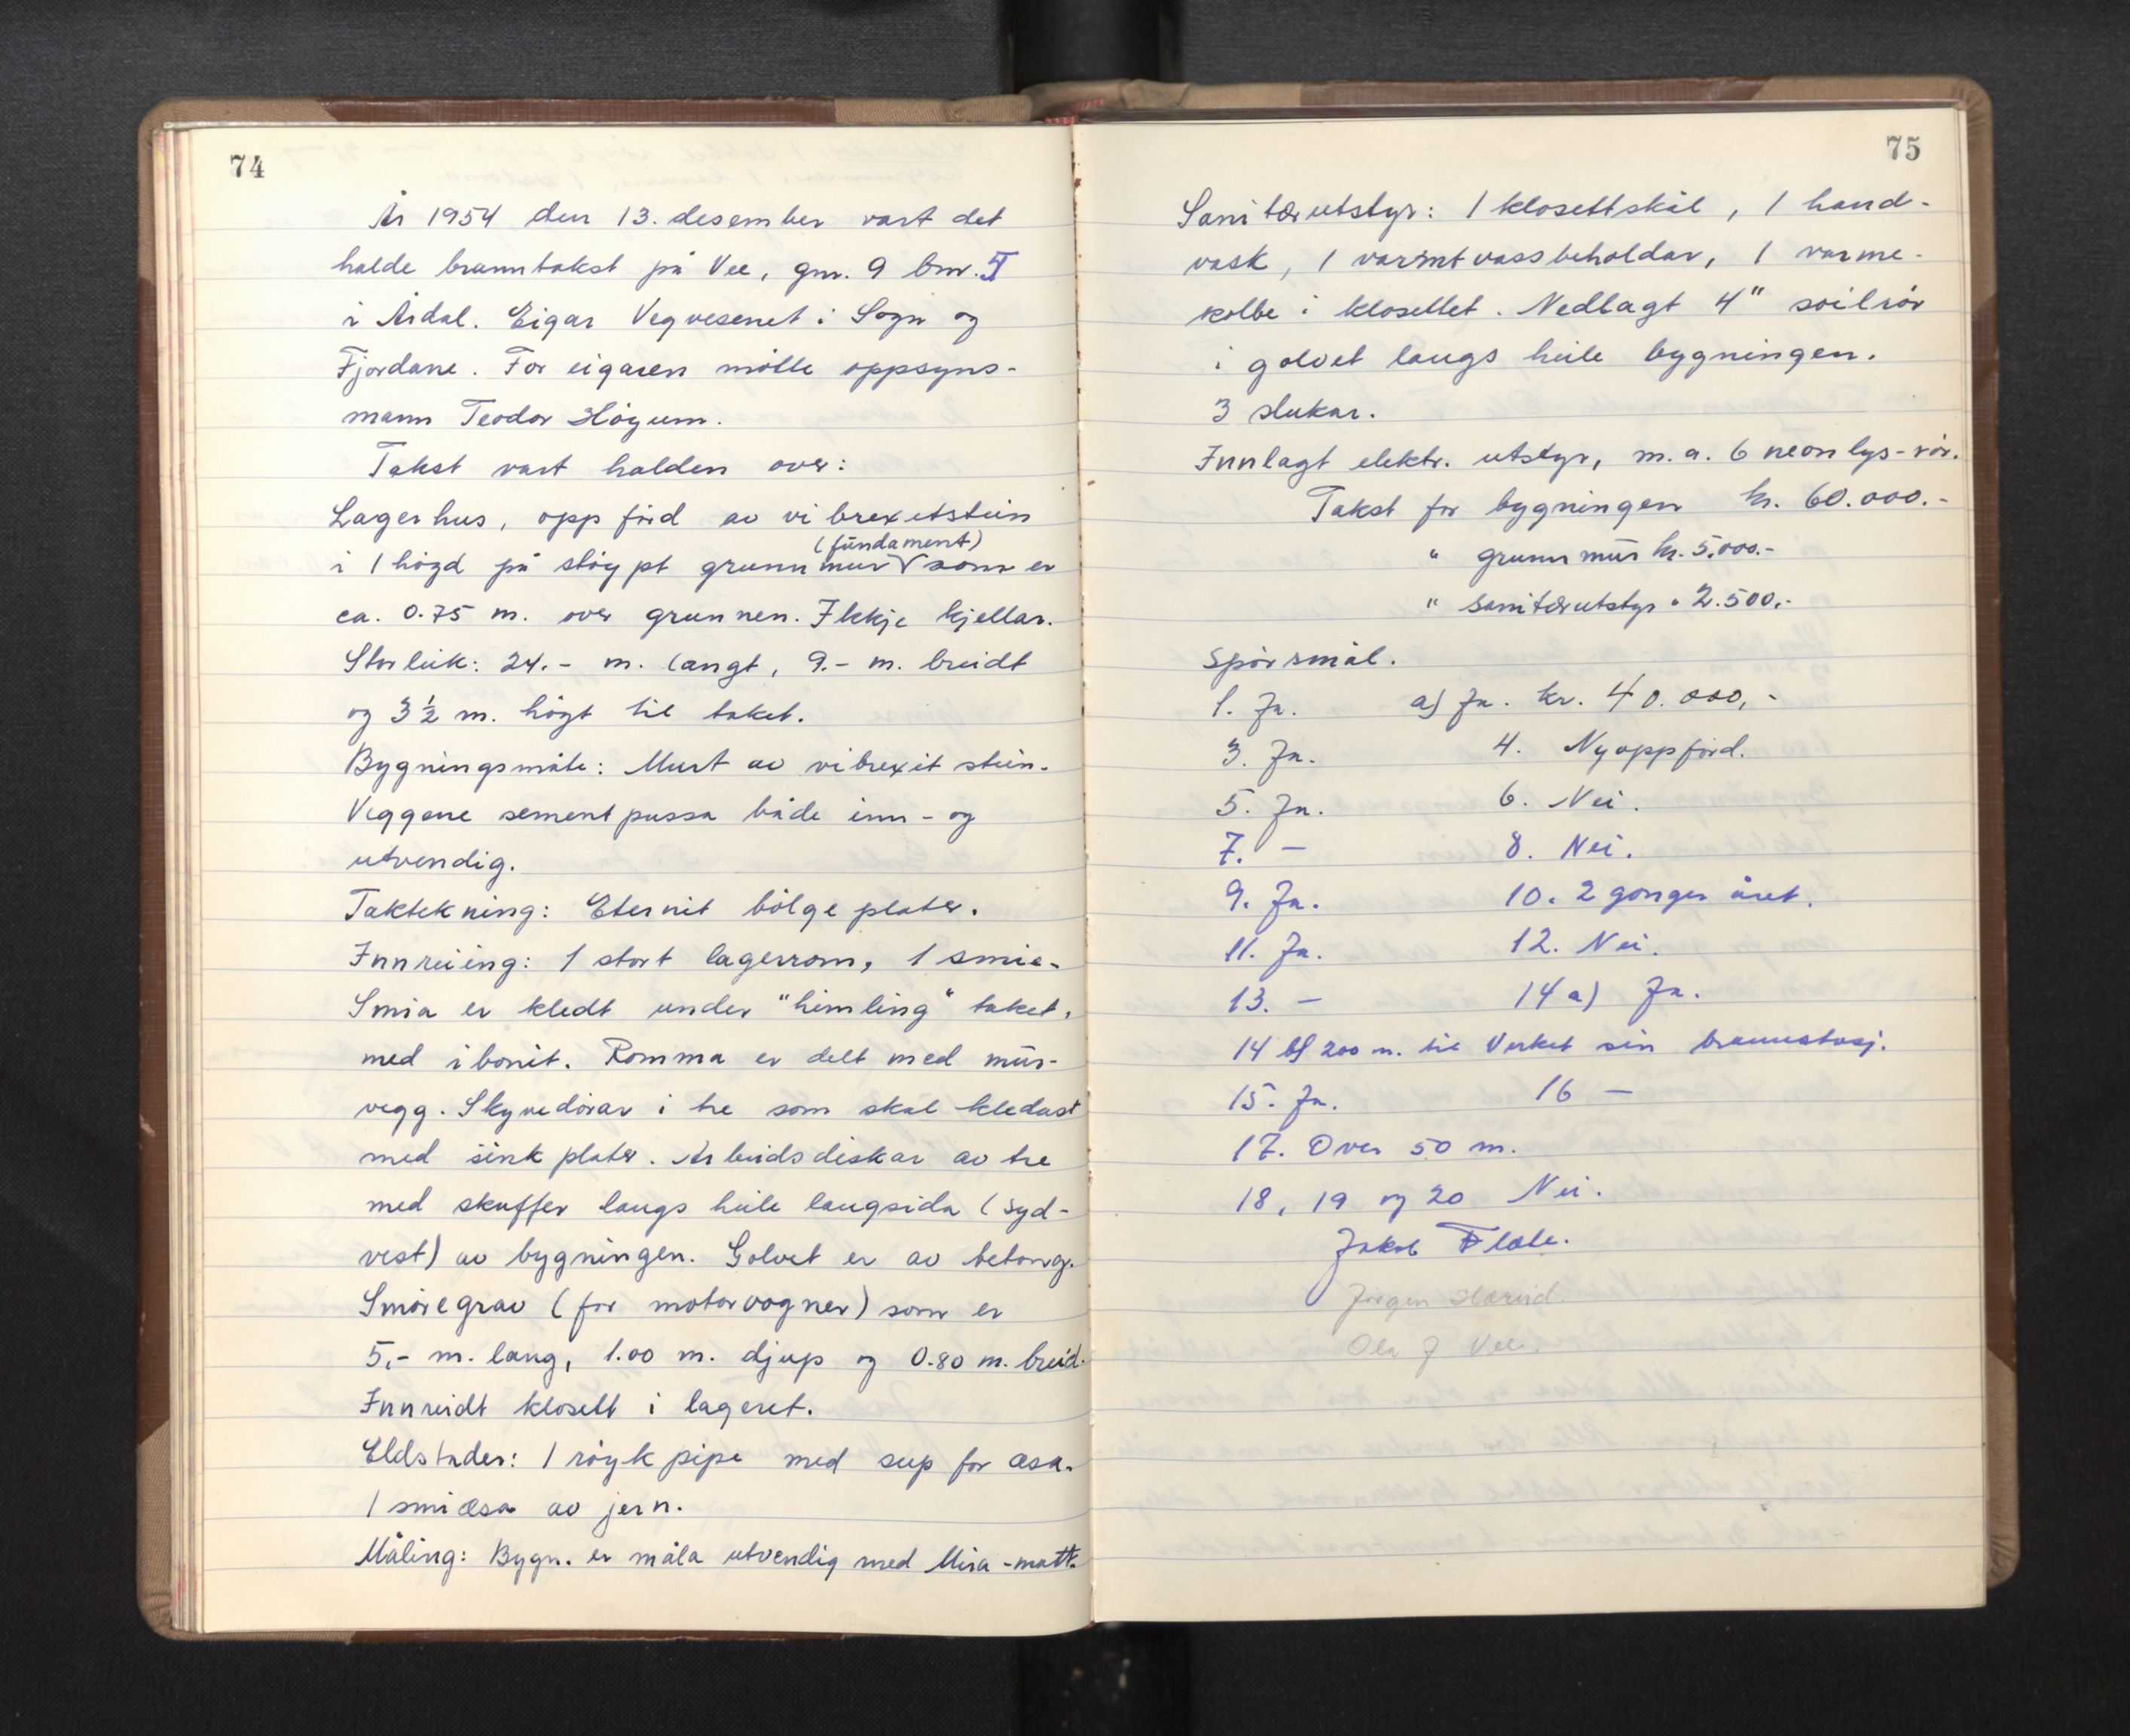 74
År 1954 den 13. desember vart det
halde branntakst på Vee, gnr. 9 bnr.
i Årdal. Eigar Vegvesenet i Sogn og
Fjordane. For eigaren møtte oppsyns-
mann Teodor Høgum.
Takst vart halden over:
Lagerhus, oppførd av vibrexitstein
(fundament)
i 1 høgd på støypt grunnmur V som er
ca. 0.75 m. over grunnen. Ikkje kjellar.
Storleik: 24.- m. langt, 9.- m. breidt
og 3 1/2 m. høgt til taket.
Bygningsmåte: Murt av vibrexit stein.
Veggene sementpussa både inn- og
utvendig.
Taktekning: Eternit bølgeplater.
Innreiing: 1 stort lagerrom, 1 smie.
Smia er kledt under "himling" taket,
med ibonit. Romma er delt med mur-
vegg. Skyvedørar i tre som skal kledast
med sinkplater. Arbeidsdiskar av tre
med skuffer langs heile langsida (syd-
vest) av bygningen. Golvet er av betong.
Smøregrav (for motorvogner) som er
5,- m. lang, 1.00 m. djup og 0.80 m. breid.
Innreidt klosett i lageret.
Eldstader: 1 røykpipe med sup for æsa.
1 smiæsa av jern.
Måling: Bygn. er måla utvendig med Mira-matt.
75
Sanitærutstyr: 1 klosettskål, 1 hand-
vask, 1 varmtvassbeholdar, 1 varme-
kolbe i klosettet. Nedlagt 4" soilrör
i golvet langs heile bygningen.
3 slukar.
Innlagt elektr. utstyr, m.a. 6 neonlys-rör.
Takst for bygningen kr. 60.000.-
" grunnmur kr. 5.000.-
" sanitærutstyr " 2.500,-
Spørsmål.
1. Ja. a) Ja. kr. 40.000,-
3. Ja. 4. Nyoppførd.
5. Ja. 6. Nei.
7. - 8. Nei.
9. Ja. 10. 2 gonger året.
11. Ja. 12. Nei.
13. - 14 a) Ja.
14 b) 200 m. til Verket sin brannstasj.
15. Ja. 16 -
17. Over 50 m.
18, 19 og 20 Nei.
Jakob Flæte.
Jørgen Hæreid.
Ola J Vee.